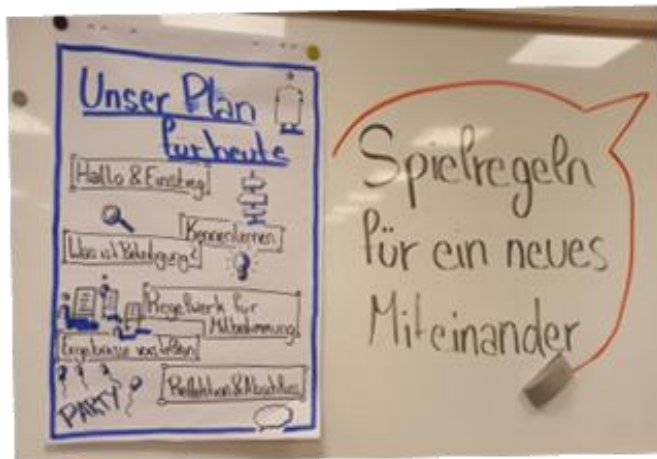 Unser Plan
für heute
Hallo & Einstieg
Kennenlernen
Was ist Beteiligung?
Regelwerk für
Mitbestimmung
Ergebnisse
Reflektion & Abschluss
PARTY
Spielregeln
für ein neues
Miteinander